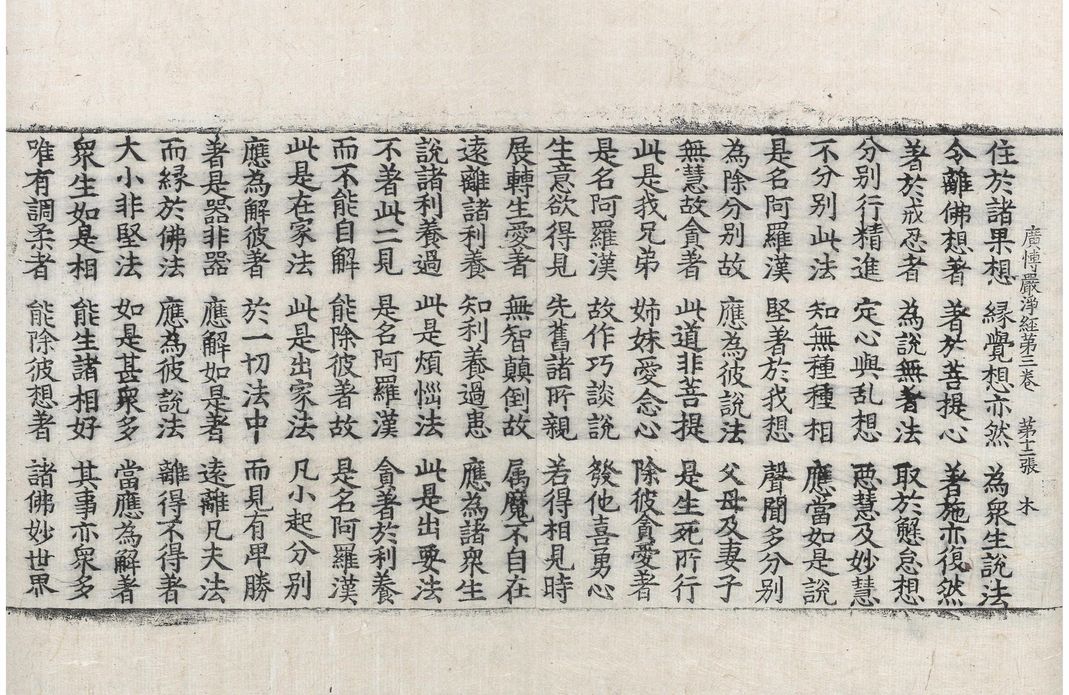 廣愽嚴淨經第三卷　第十二張　木
住於諸果想　縁覺想亦然　為衆生說法
令離佛想著　著於菩提心　著施亦復然
著於戒忍者　為說無著法　取於懈怠想
分别行精進　定心與乱想　惡慧及妙慧
不分别此法　知無種種相　應當如是說
是名阿羅漢　堅著於我想　聲聞多分别
為除分别故　應為彼說法　父母及妻子
無慧故貪著　此道非菩提　是生死所行
此是我兄弟　姉妹愛念心　除彼貪愛者
是名阿羅漢　故作巧談說　發他喜勇心
生意欲得見　先舊諸所親　若得相見時
展轉生愛著　無智顛倒故　属魔不自在
遠離諸利養　知利養過患　應為諸衆生
說諸利養過　此是煩惱法　此是出要法
不著此二見　是名阿羅漢　貪著於利養
而不能自解　能除彼著故　是名阿羅漢
此是在家法　此是出家法　凡小起分别
應為解彼著　於一切法中　而見有卑勝
著是器非器　應解如是著　遠離凡夫法
而縁於佛法　應為彼說法　離得不得著
大小非堅法　如是甚衆多　當應為解著
衆生如是相　能生諸相好　其事亦衆多
唯有調柔者　能除彼想著　諸佛妙世界